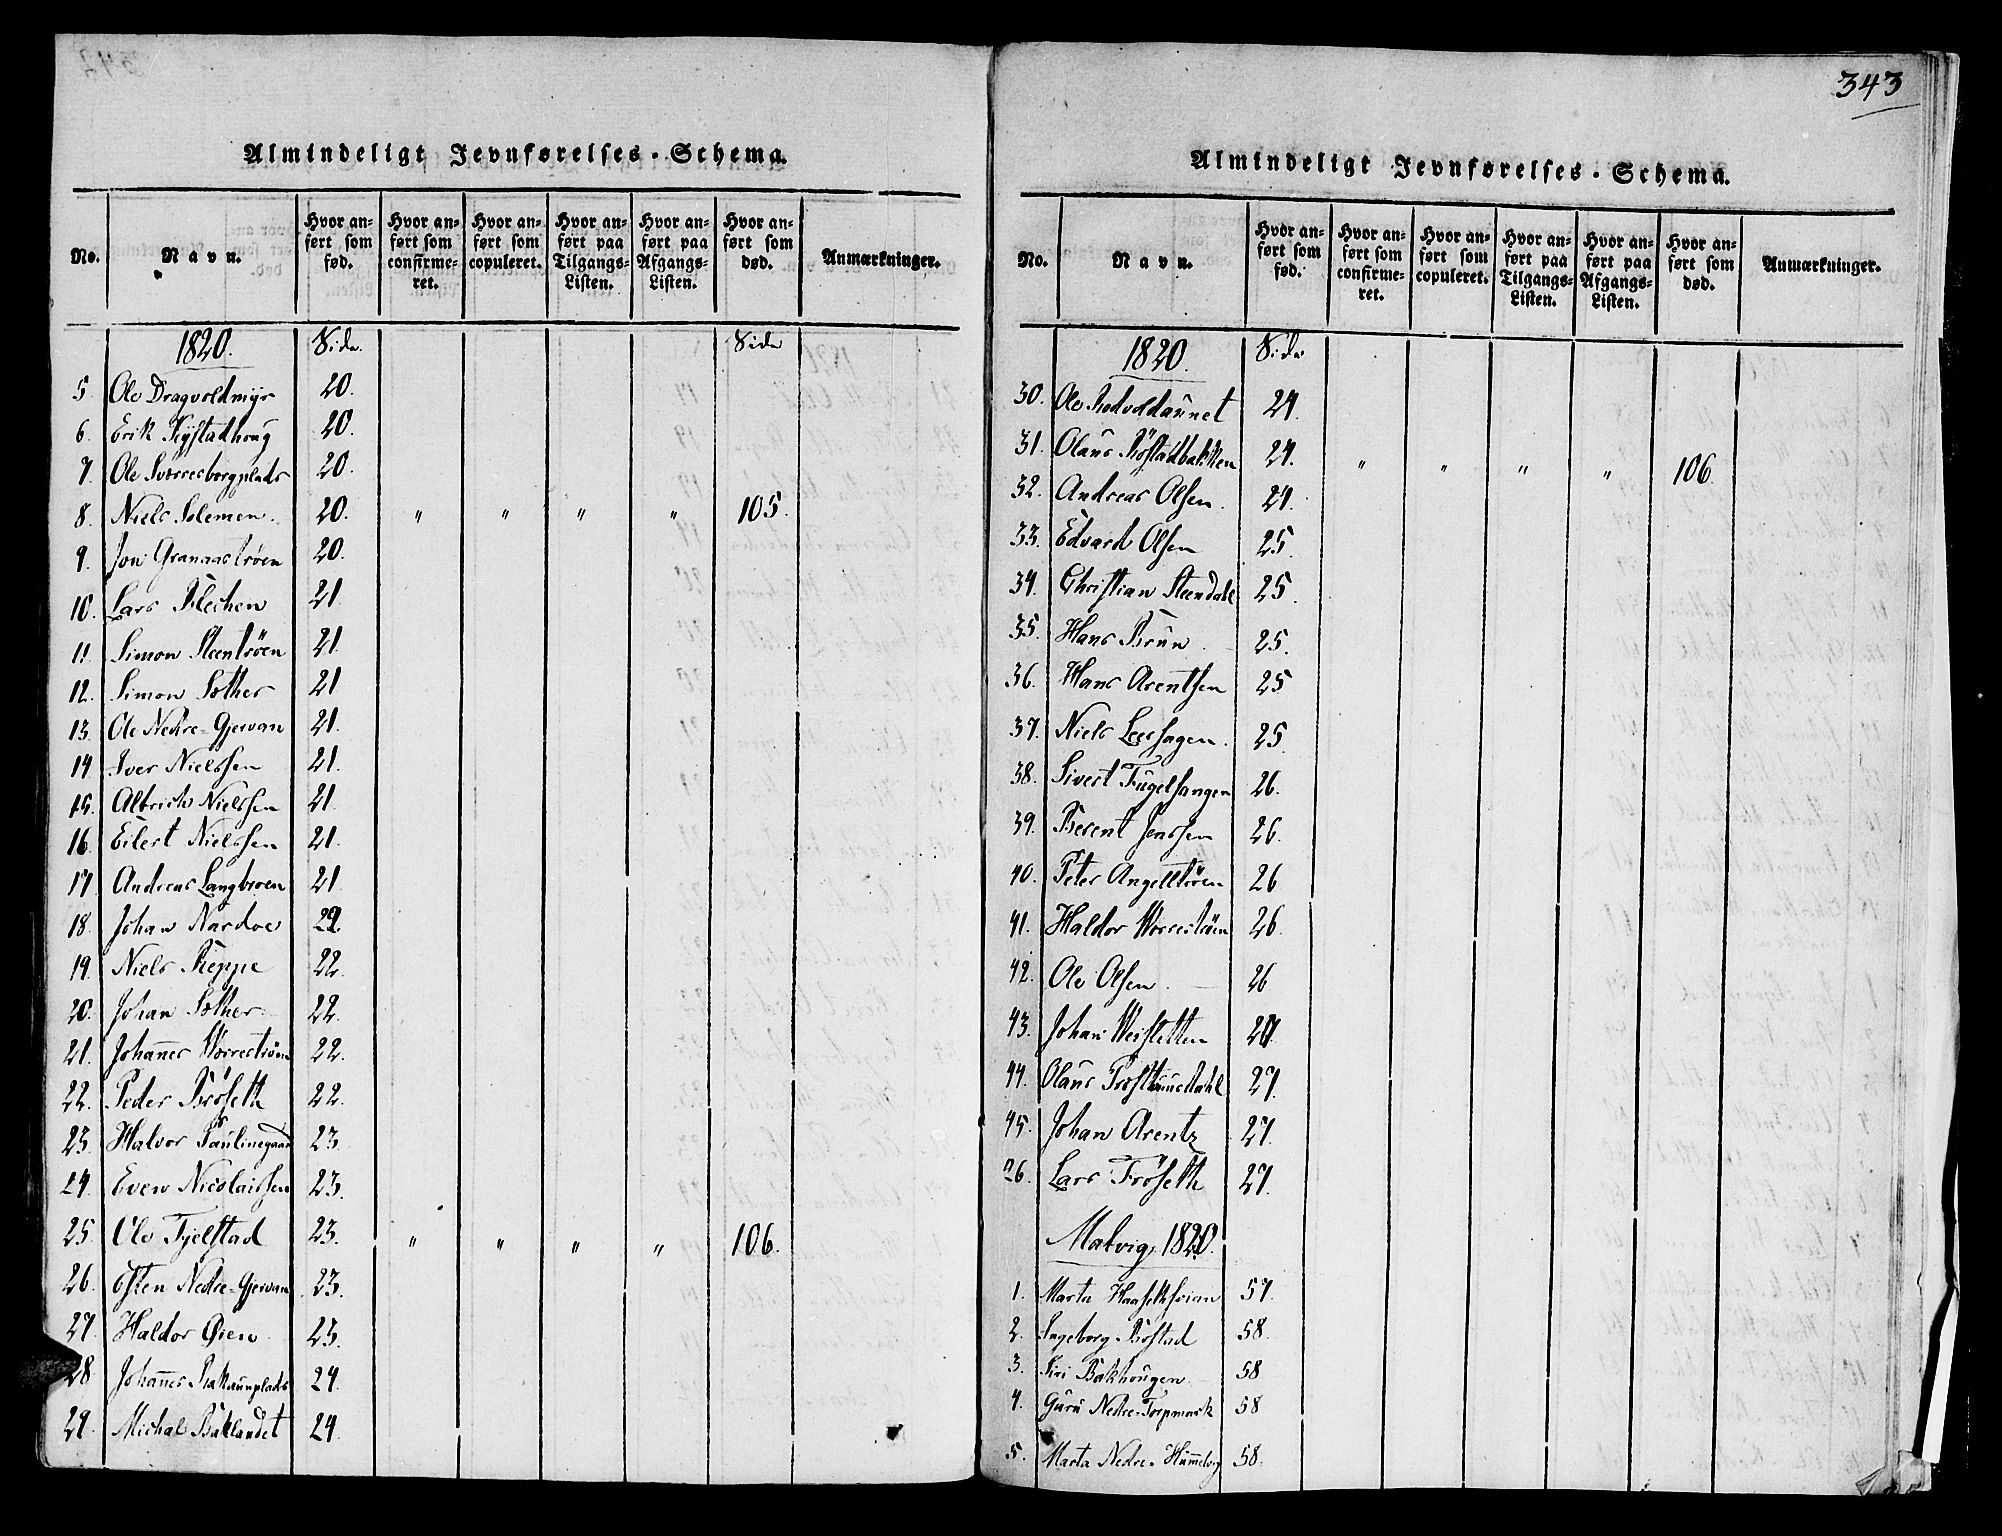 Almindeligt Jevnførelses-Schema.
No. Navn. Hvor anført som fød. Hvor anført som confirmeret. Hvor anført som copuleret. Hvor anført paa Tilgangs-Listen. Hvor anført paa Afgangs-Listen. Hvor anført som død. Anmærkninger.
1820. Side. Side
5 Ole Dragvoldmyr 20.
6. Erik 20.
7. Ole Sverresborgplads 20.
8. Niels Solemen. 20. " " " " 105.
9. Jon Granaastrøen 20.
10. Lars Blechen 21
11. Simon Steentröen 21.
12. Simon Sother 21
13. Ole Nedre-Gjervan 21.
14 Iver Nielssen 21.
15. Albrich Nielssen 21.
16. Eilert Nielssen 21.
17. Andreas Langbroen 21
18. Johan Nardoe 22.
19. Niels Reppe 22.
20. Johan Sother 22.
21. Johannes Worreströen 22.
22. Peder Bröseth 22.
23. Halvor Paulinegaard 23.
24. Even Nicolaissen 23.
25. Ole Fjelstad 23. " " " " 106.
26. Esten Nedre-Gjervan 23.
27. Haldor Øien 23.
28. Johannes Rakaunplads 24.
29. Michal Baklandet 24.
343
Almindeligt Jevnførelses-Schema.
No. Navn. Hvor anført som fød. Hvor anført som confirmeret. Hvor anført som copuleret. Hvor anført paa Tilgangs-Listen. Hvor anført paa Afgangs-Listen. Hvor anført som død. Anmærkninger.
1820. Side
30. Ole 24.
31. Olaus Röstadbakken 24. " " " " 106.
32. Andreas Olsen 24.
33. Edvard Olsen 25.
34. Christian Steendahl 25.
35. Hans Brun 25.
36. Hans Arentsen 25
37. Niels Leeshagen. 25
38. Sivert Fugelsangen 26.
39. Berent Jenssen 26
40. Peter Angelltröen 26
41. Haldor Worreströen 26.
42. Ole Olsen 26
43. Johan Weisletten 27.
44. Olaus 27.
45. Johan Arentz 27.
26. Lars Fröseth 27.
Malvig, 1820.
1. Marta 57.
2. Ingeborg Bostad 58.
3. Siri Bakhougen 58
4. Guru Nedre-Torpmark 58
5. Marta Nedre-Hummelvig 58.